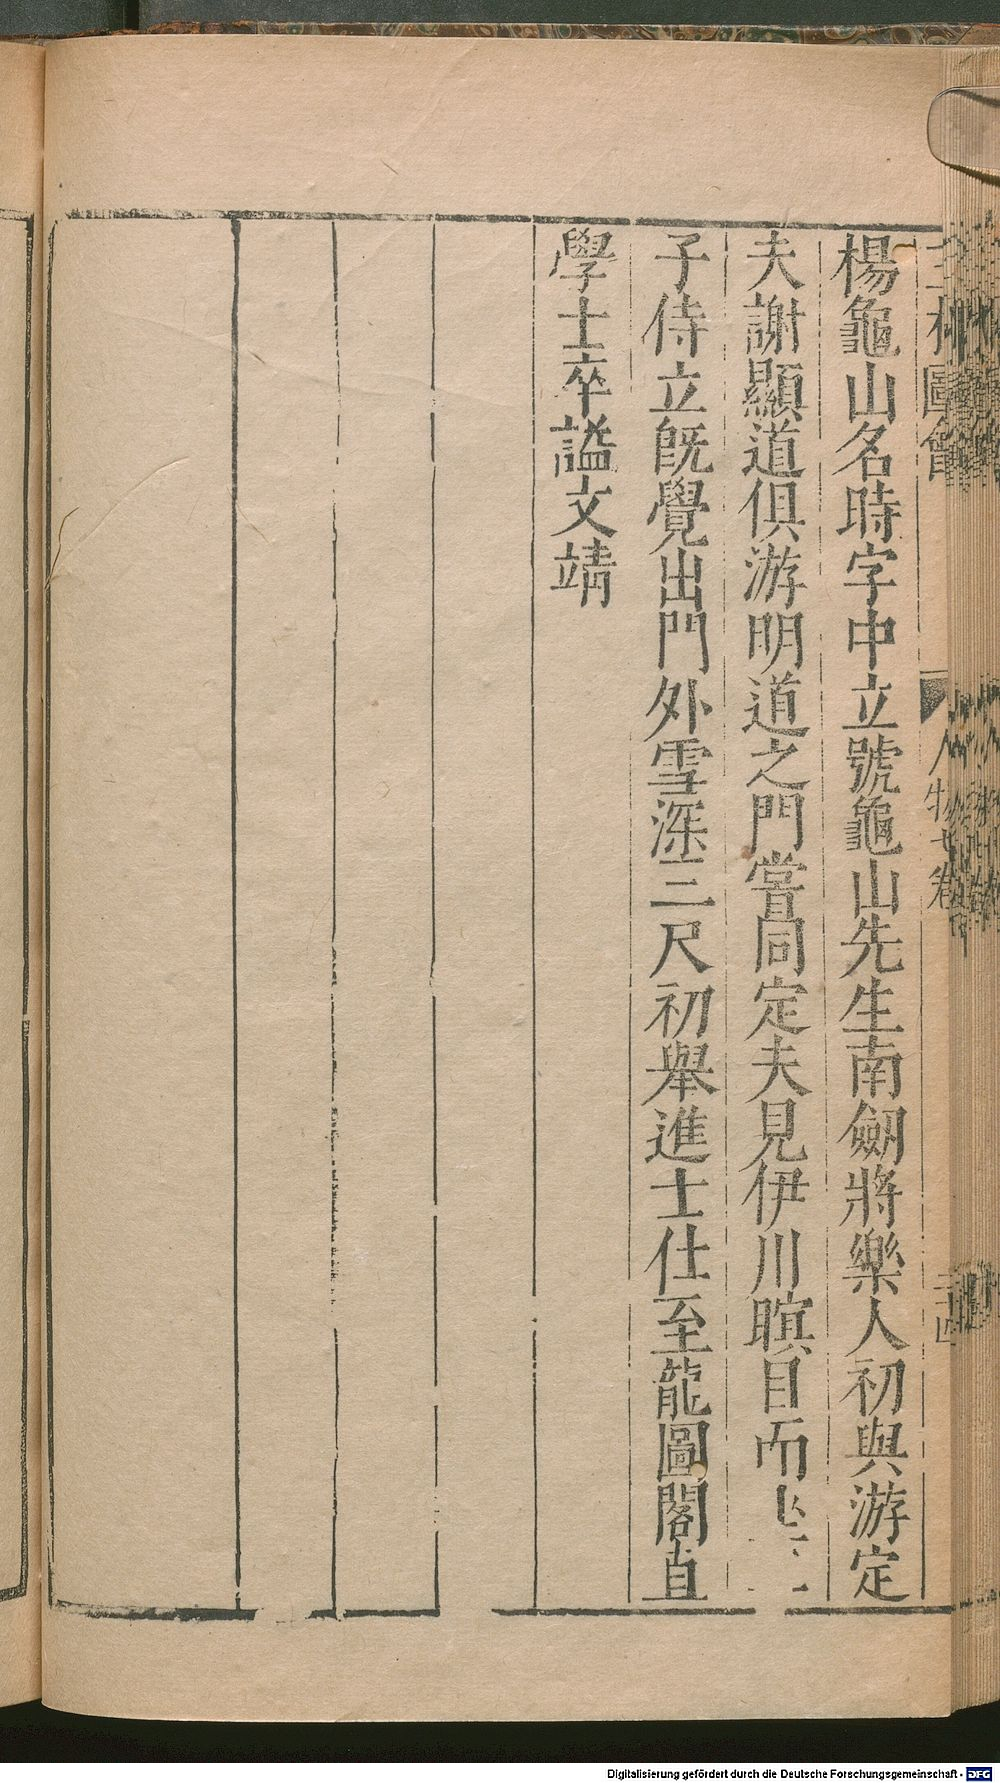 圖會
人物七卷
楊龜山名時字中立號龜山先生南劒將樂人初與游定
夫謝顯道俱游明道之門嘗同定夫見伊川瞑目而坐二
子侍立旣覺出門外雪深三尺初舉進士仕至龍圖閣直
學士卒謚文靖
Digitalisierung gefördert durch die Deutsche Forschungsgemeinschaft - DFG